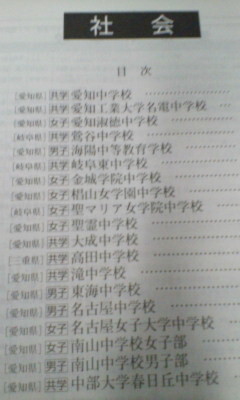 社会
目次
[愛知県] 共学 愛知中学校 ………………
[愛知県] 共学 愛知工業大学名電中学校 ……
[愛知県] 女子 愛知淑徳中学校 …………
[岐阜県] 共学 鶯谷中学校 ………………
[愛知県] 男子 海陽中等教育学校 ………
[岐阜県] 共学 岐阜東中学校 ……………
[愛知県] 女子 金城学院中学校 …………
[愛知県] 女子 椙山女学園中学校 ………
[岐阜県] 女子 聖マリア女学院中学校 ……
[愛知県] 女子 聖霊中学校 ………………
[愛知県] 共学 大成中学校 ………………
[三重県] 共学 高田中学校 ………………
[愛知県] 共学 滝中学校 …………………
[愛知県] 男子 東海中学校 ………………
[愛知県] 男子 名古屋中学校 ……………
[愛知県] 女子 名古屋女子大学中学校 ……
[愛知県] 女子 南山中学校女子部 ………
[愛知県] 男子 南山中学校男子部 ………
[愛知県] 共学 中部大学春日丘中学校 ……